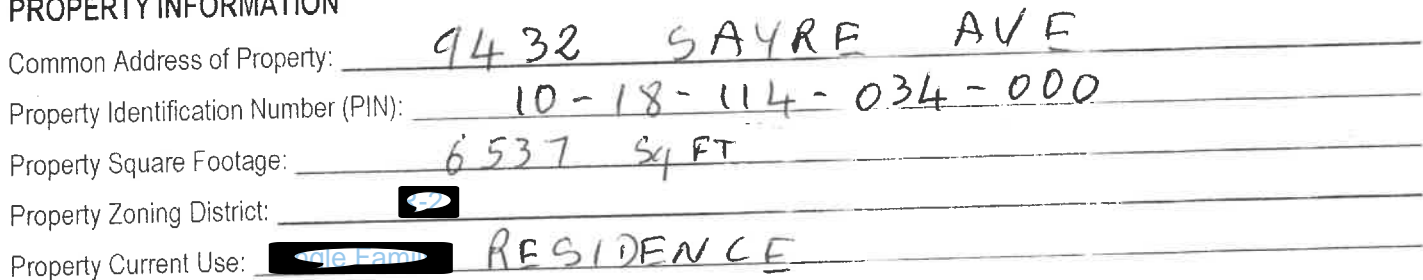 PROPERTY INFORMATION
Common Address of Property: 9432 SAYRE AVE
Property Identification Number (PIN): 10-18-114-034-000
Property Square Footage: 6537 Sq FT
Property Zoning District: -2
Property Current Use: RESIDENCE